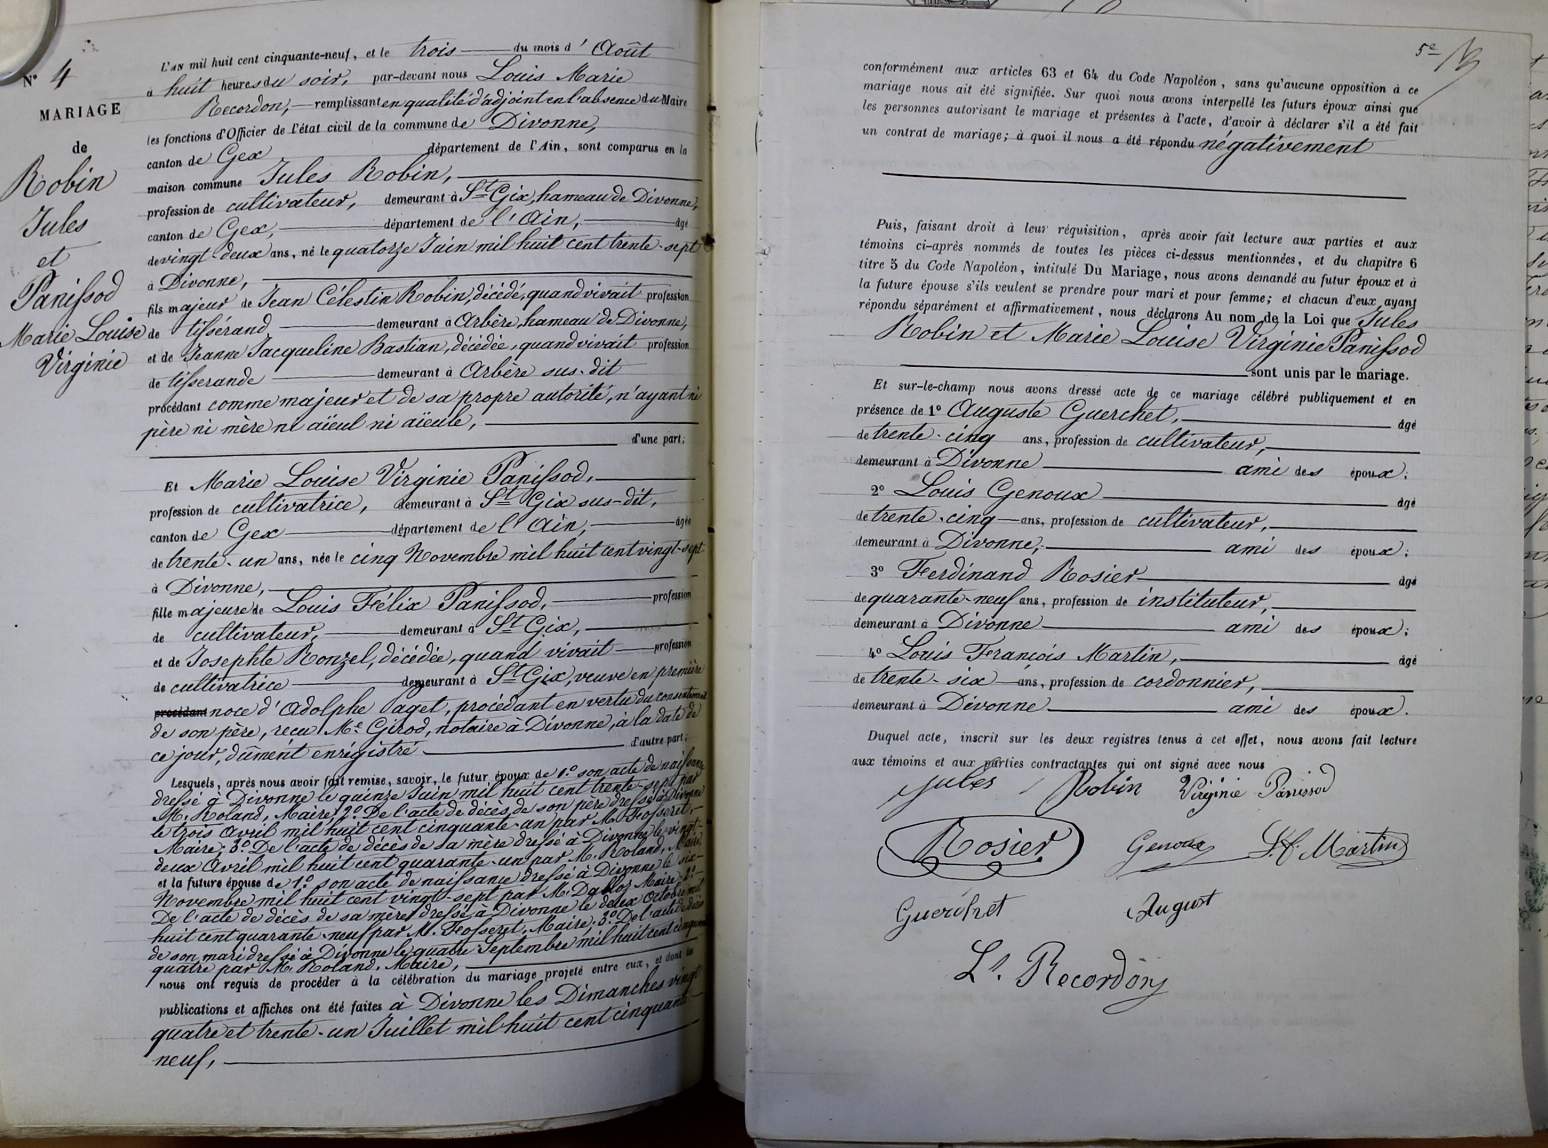 N° 4
MARIAGE
de
Robin
Jules
et
Panissod
Marie Louise
Virginie
L'an mil huit cent cinquante-neuf, et le trois du mois d'Août
à huit heures du soir, par-devant nous Louis Marie
Recordon, remplissant en qualité d'adjoint en l'absence du Maire
les fonctions d'Officier de l'état civil de la commune de Divonne,
canton de Gex département de l'Ain, sont comparus en la
maison commune Jules Robin,
profession de cultivateur, demeurant à St Gix, hameau de Divonne,
canton de Gex, département de l'Ain, âgé
de vingt deux ans, né le quatorze Juin mil huit cent trente-sept
à Divonne,
fils majeur de Jean Célestin Robin, décédé, quand vivait profession
de tisserand demeurant à Arbère, hameau de Divonne,
et de Jeanne Jacqueline Bastian, décédée, quand vivait profession
de tisserande demeurant à Arbère sus-dit
procédant comme majeur et de sa propre autorité, n'ayant ni
père ni mère ni aïeul ni aïeule,
d'une part;
Et Marie Louise Virginie Panissod,
profession de cultivatrice, demeurant à St Gix sus-dit,
canton de Gex département de l'Ain, âgée
de trente-un ans, née le cinq Novembre mil huit cent vingt-sept
à Divonne,
fille majeure de Louis Félix Panissod, profession
de cultivateur, demeurant à St Gix,
et de Josephte Ronzel, décédée, quand vivait profession
de cultivatrice demeurant à St Gix, veuve en première
procédant noce d'Adolphe Paget, procédant en vertu du consentement
de son père, reçu Me Girod, notaire à Divonne, à la date de
ce jour, dûment enrégistré d'autre part;
Lesquels, après nous avoir fait remise, savoir, le futur époux de 1° son acte de naissance
dressé à Divonne le quinze Juin mil huit cent trente-sept par
M. Roland, Maire; 2° De l'acte de décès de son père dressé à Divonne
le trois Avril mil huit cent cinquante-un par M. Fosseret,
Maire; 3° De l'acte de décès de sa mère dressé à Divonne le vingt-
deux Avril mil huit cent quarante-un par M. Roland, Maire,
et la future épouse de 1° son acte de naissance dressé à Divonne le six
Novembre mil huit cent vingt-sept par M. Maire; 2°
De l'acte de décès de sa mère dressé à Divonne le deux Octobre mil
huit cent quarante-neuf par M. Fosseret, Maire; 3° De l'acte de décès
de son mari dressé à Divonne le quatre Septembre mil huit cent cinquante
quatre par M. Roland, Maire,
nous ont requis de procéder à la célébration du mariage projeté entre eux, et dont les
publications et affiches ont été faites à Divonne les Dimanches vingt
quatre et trente-un Juillet mil huit cent cinquante
neuf,
5e
conformément aux articles 63 et 64 du Code Napoléon, sans qu'aucune opposition à ce
mariage nous ait été signifiée. Sur quoi nous avons interpellé les futurs époux ainsi que
les personnes autorisant le mariage et présentes à l'acte, d'avoir à déclarer s'il a été fait
un contrat de mariage; à quoi il nous a été répondu négativement
Puis, faisant droit à leur réquisition, après avoir fait lecture aux parties et aux
témoins ci-après nommés de toutes les pièces ci-dessus mentionnées, et du chapitre 6
titre 5 du Code Napoléon, intitulé Du Mariage, nous avons demandé au futur époux et à
la future épouse s'ils veulent se prendre pour mari et pour femme; et chacun d'eux ayant
répondu séparément et affirmativement, nous déclarons Au nom de la Loi que Jules
Robin et Marie Louise Virginie Panissod
sont unis par le mariage.
Et sur-le-champ nous avons dressé acte de ce mariage célébré publiquement et en
présence de 1° Auguste Guerchet, âgé
de trente-cinq ans, profession de cultivateur,
demeurant à Divonne ami des époux;
2° Louis Genoux âgé
de trente-cinq ans, profession de cultivateur,
demeurant à Divonne, ami des époux;
3° Ferdinand Rosier âgé
de quarante-neuf ans, profession de instituteur,
demeurant à Divonne ami des époux;
4° Louis François Martin, âgé
de trente-six ans, profession de cordonnier,
demeurant à Divonne ami des époux.
Duquel acte, inscrit sur les deux registres tenus à cet effet, nous avons fait lecture
aux témoins et aux parties contractantes qui ont signé avec nous
Jules Robin Virginie Panissod
Rosier Genoux L. f. Martin
Guerchet August
Ls. Recordon